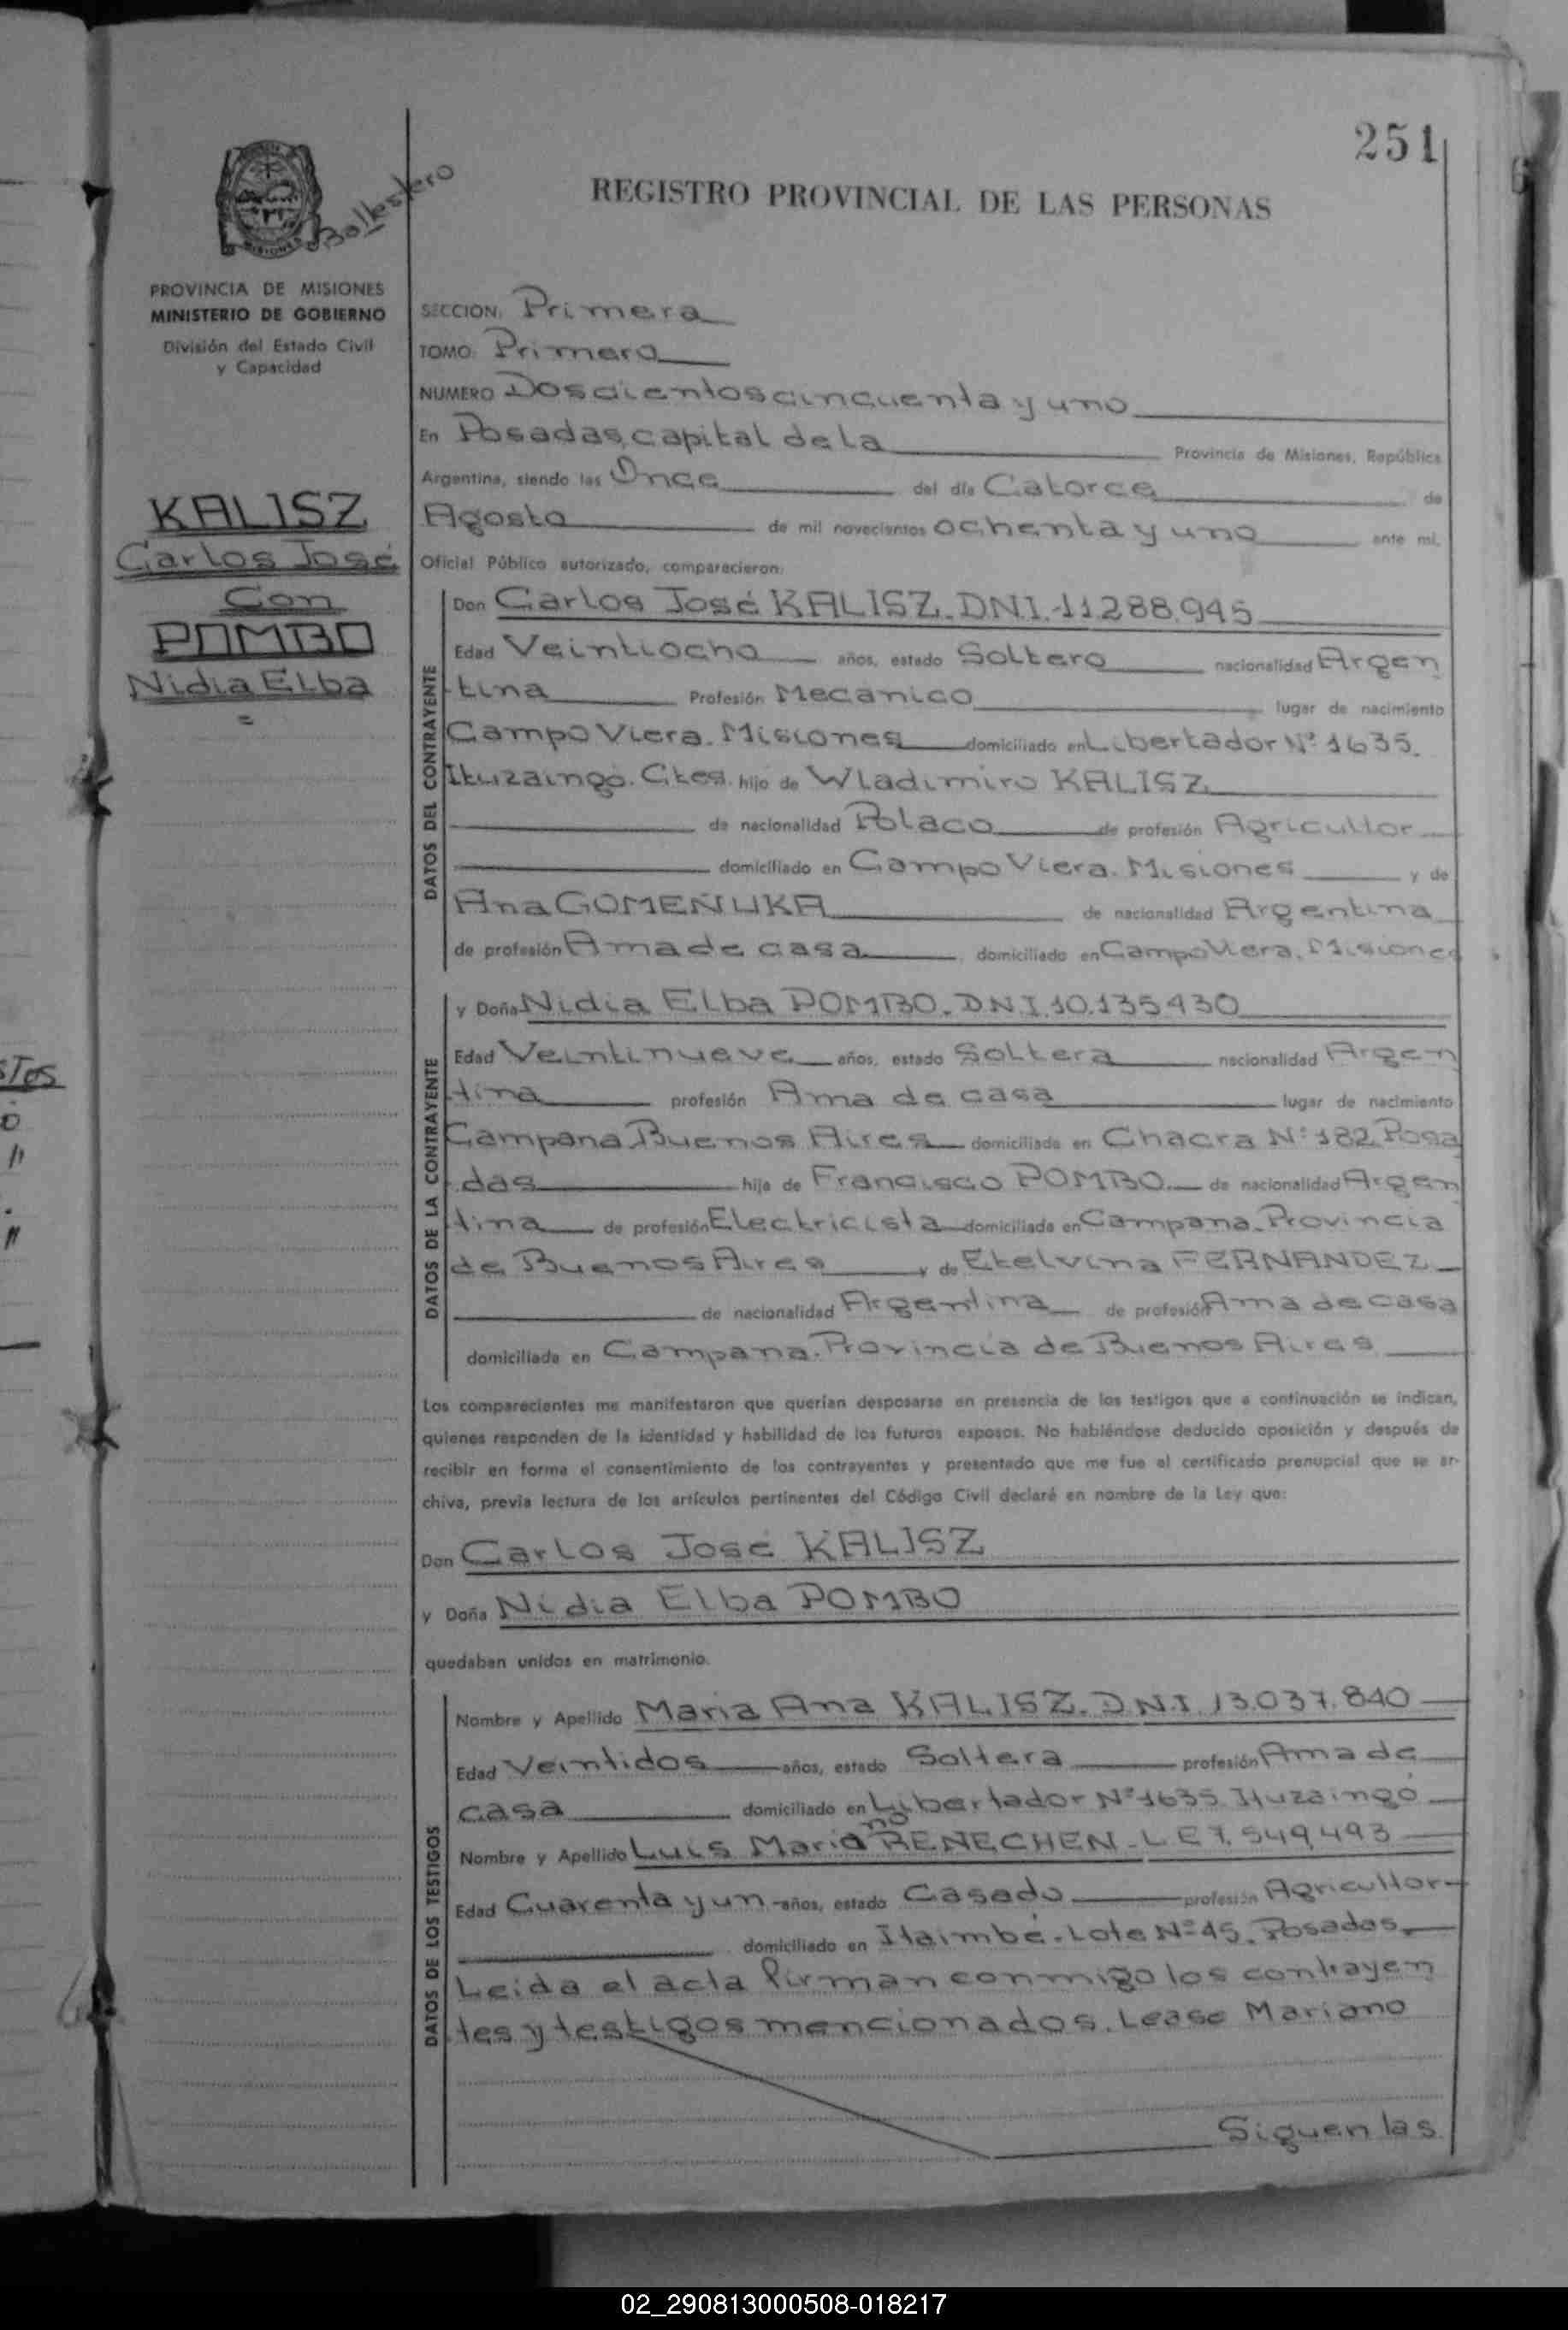 251
Ballestero
REGISTRO PROVINCIAL DE LAS PERSONAS
MISIONES
PROVINCIA DE MISIONES
MINISTERIO DE GOBIERNO
División del Estado Civil
y Capacidad
KALISZ
Carlos José
Con
POMBO
Nidia Elba
=
SECCION: Primera
TOMO: Primero
NUMERO Doscientos cincuenta y uno
En Posadas, capital de la Provincia de Misiones, República
Argentina, siendo las Once del día Catorce de
Agosto de mil novecientos ochenta y uno ante mi,
Oficial Público autorizado, comparecieron:
DATOS DEL CONTRAYENTE
Don Carlos José KALISZ. D.N.I. 11.288.945
Edad Veintiocho años, estado Soltero nacionalidad Argen
tina Profesión Mecanico lugar de nacimiento
Campo Viera. Misiones domiciliado en Libertador Nº 1635.
Ituzaingó. Ctes. hijo de Wladimiro KALISZ
de nacionalidad Polaco de profesión Agricultor
domiciliado en Campo Viera. Misiones y de
Ana GOMEÑUKA de nacionalidad Argentina
de profesión Ama de casa domiciliado en Campo Viera. Misiones
DATOS DE LA CONTRAYENTE
y Doña Nidia Elba POMBO. D.N.I. 10.135.430
Edad Veintinueve años, estado Soltera nacionalidad Argen
tina profesión Ama de casa lugar de nacimiento
Campana Buenos Aires domiciliada en Chacra Nº 182 Posa
das hija de Francisco POMBO de nacionalidad Argen
tina de profesión Electricista domiciliado en Campana. Provincia
de Buenos Aires y de Etelvina FERNANDEZ
de nacionalidad Argentina de profesión Ama de casa
domiciliada en Campana. Provincia de Buenos Aires
Los comparecientes me manifestaron que querían desposarse en presencia de los testigos que a continuación se indican,
quienes responden de la identidad y habilidad de los futuros esposos. No habiéndose deducido oposición y después de
recibir en forma el consentimiento de los contrayentes y presentado que me fue el certificado prenupcial que se ar-
chiva, previa lectura de los artículos pertinentes del Código Civil declaré en nombre de la Ley que:
Don Carlos José KALISZ
y Doña Nidia Elba POMBO
quedaban unidos en matrimonio.
DATOS DE LOS TESTIGOS
Nombre y Apellido Maria Ana KALISZ. D.N.I. 13.037.840
Edad Veintidos años, estado Soltera profesión Ama de
casa domiciliado en Libertador Nº 1635 Ituzaingó
no
Nombre y Apellido Luis Maria RENECHEN - L E 7.549.493
Edad Cuarenta y un años, estado Casado profesión Agricultor
domiciliado en Itaimbé. Lote Nº 45. Posadas.
Leida el acta firman conmigo los contrayen
tes y testigos mencionados. Lease Mariano
Siguen las
STOS
02_290813000508-018217